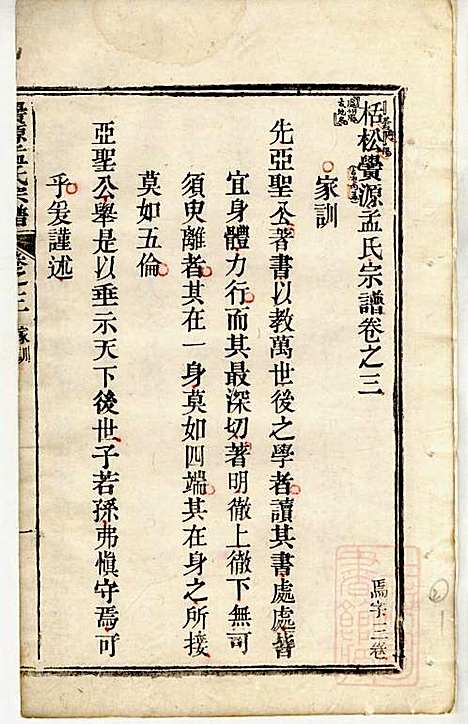 栝松黌源孟氏宗譜卷之三
焉字三卷
家訓
先亞聖公著書以教萬世後之學者讀其書處處皆
宜身體力行而其最深切著明徹上徹下無可
須臾離者其在一身莫如四端其在身之所接
莫如五倫
亞聖公舉是以垂示天下後世子若孫弗慎守焉可
乎爰謹述
黌源孟氏宗譜
卷之三
家訓
一